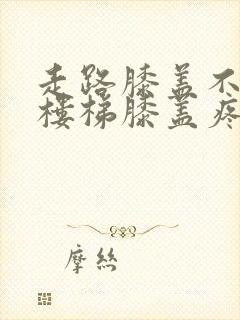 走路膝盖不
楼梯膝盖疼
摩丝